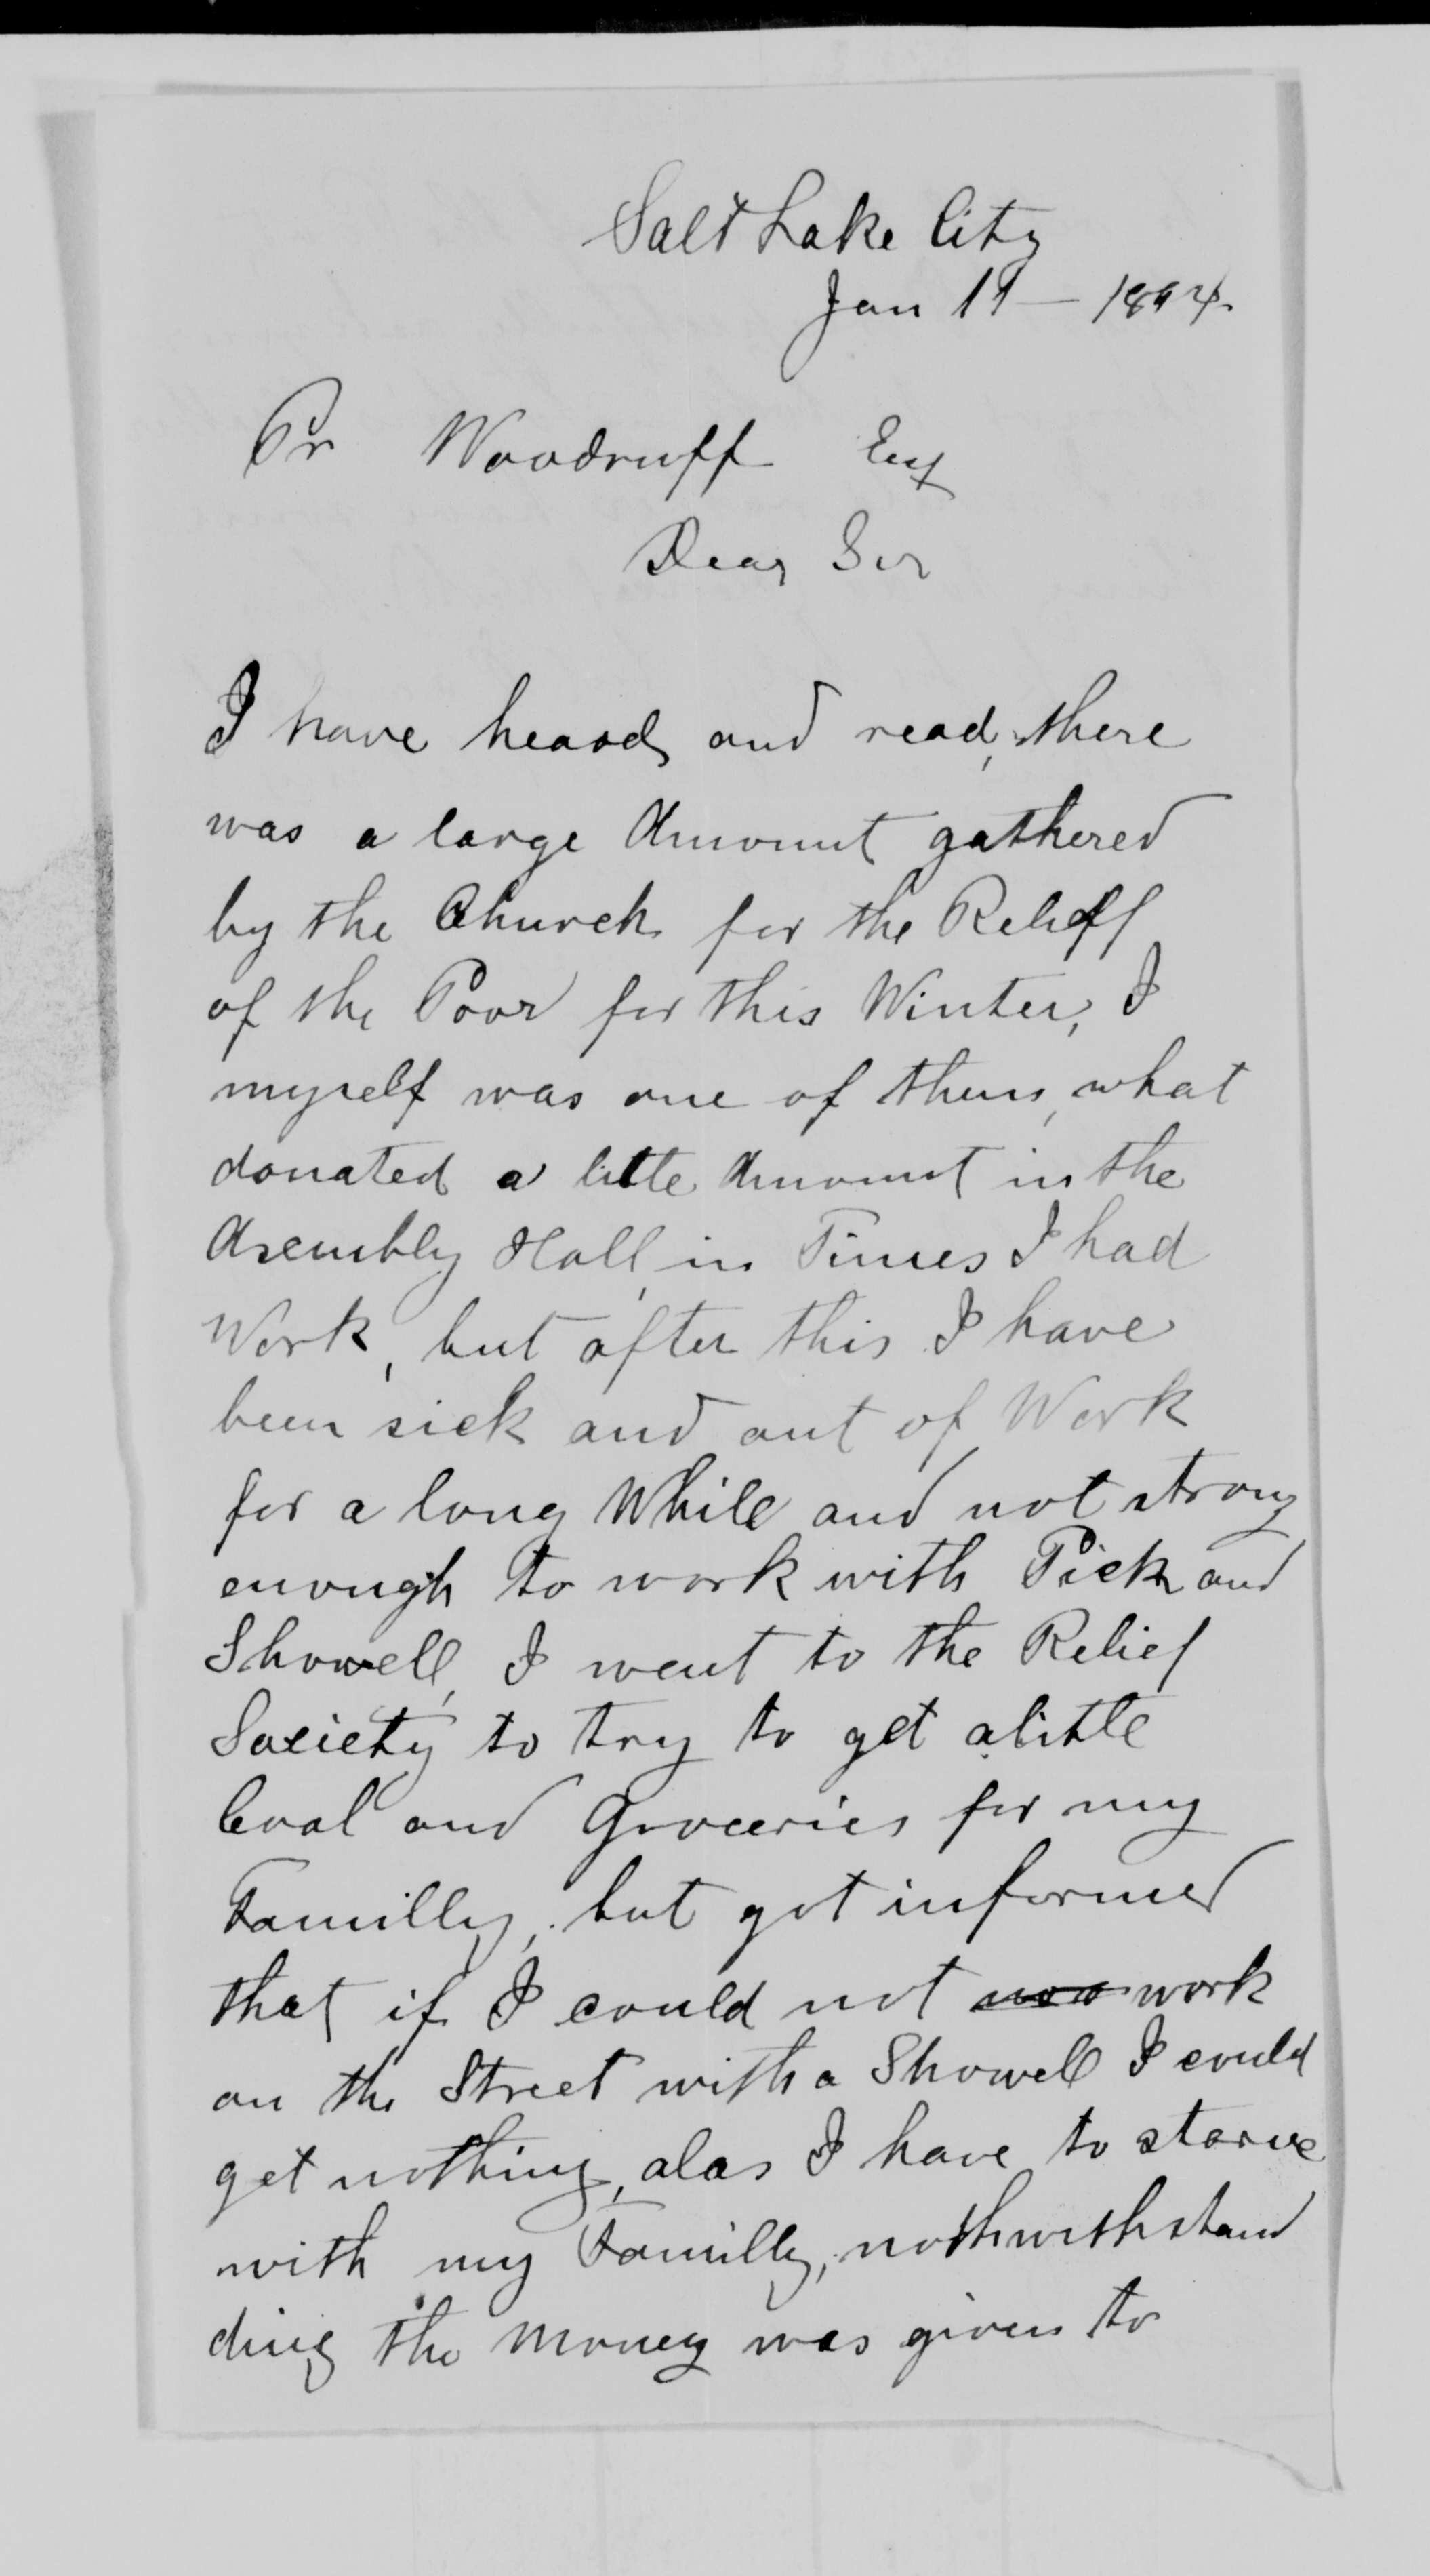 Salt Lake City
Jan 11 — 1894.
Pr Woodruff Esq
Dear Sir
I have heard, and read, there
was a large Amount gathered
by the Church for the Relieff
of the Poor for this Winter, I
myself was one of them, what
donated a litte Amount in the
Asembly Hall, in Times I had
Work, but after this I have
been sick and out of Work
for a long While and not strong
enough to work with Pick and
Showell, I went to the Relief
Society to try to get a little
Coal and Groceries for my
Familly, but got informed
that if I could not work
on the Street with a Showell I could
get nothing, alas I have to starve
with my Familly, nothwithstan
ding the Money was given to